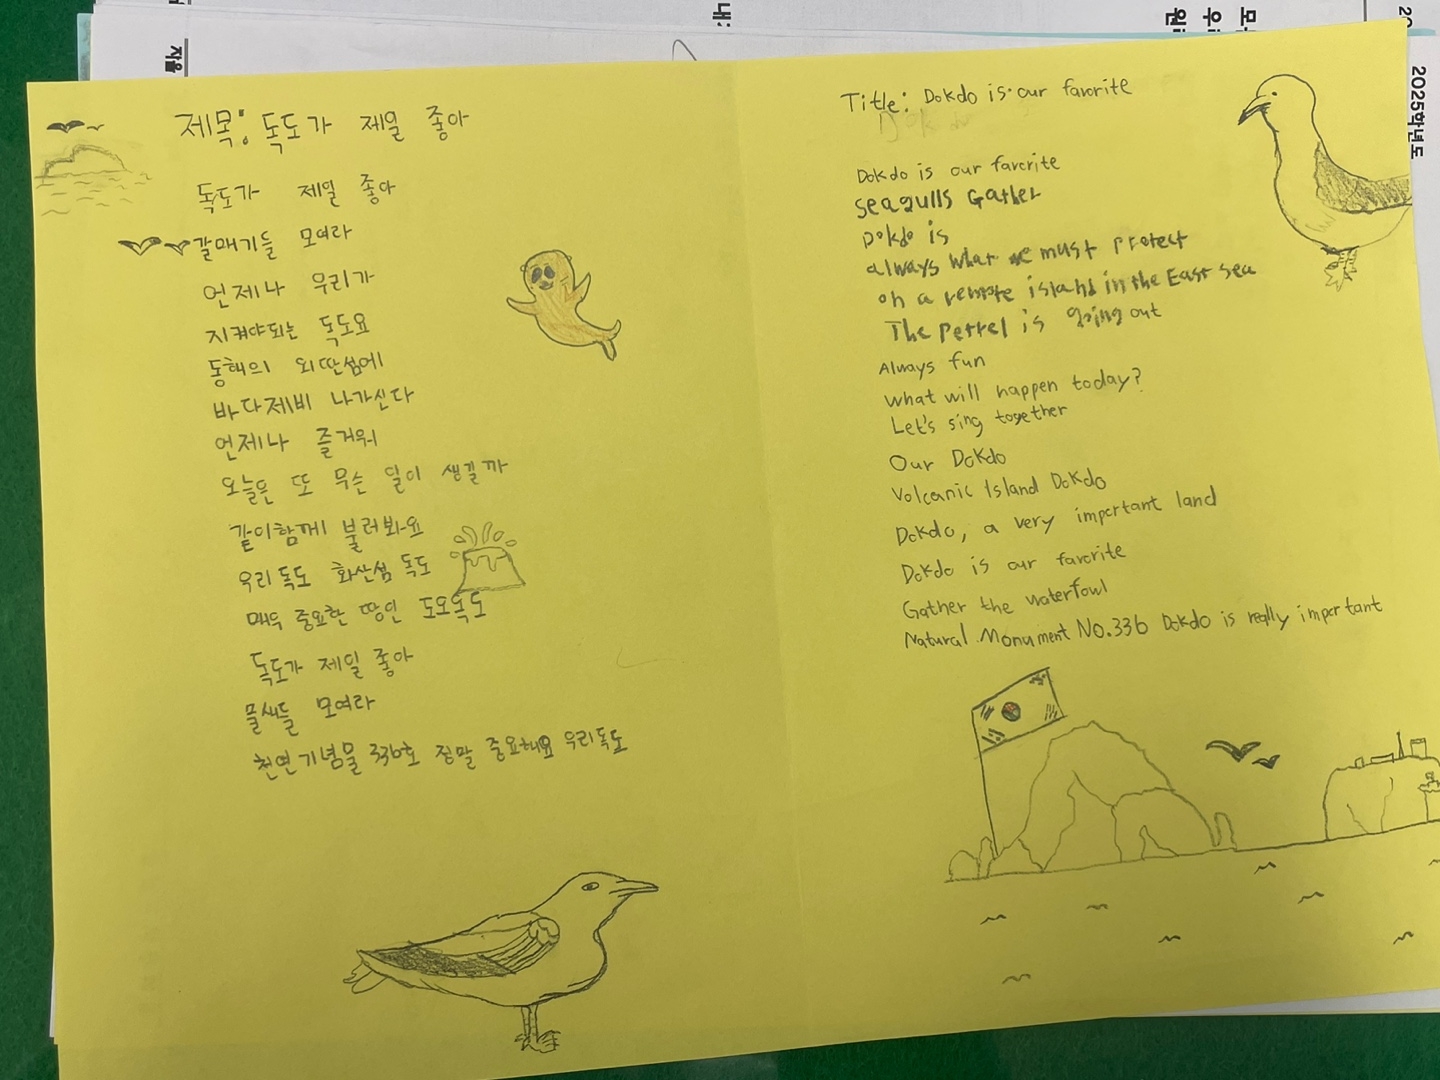 제목: 독도가 제일 좋아
독도가 제일 좋아
갈매기들 모여라
언제나 우리가
지켜야되는 독도요
동해의 외딴섬에
바다제비 나가신다
언제나 즐거워
오늘은 또 무슨 일이 생길까
같이함께 불러봐요
우리독도 화산섬 독도
매우 중요한 땅인 도오독도
독도가 제일 좋아
물새들 모여라
천연기념물 336호 정말 중요해요 우리독도
Title: Dokdo is our favorite
Dokdo is our favorite
seagulls Gather
Dokdo is
always what we must protect
on a remote island in the East sea
The petrel is going out
Always fun
what will happen today?
Let's sing together
Our Dokdo
Volcanic Island Dokdo
Dokdo, a very important land
Dokdo is our favorite
Gather the waterfowl
Natural Monument No.336 Dokdo is really important
2025학년도
내: